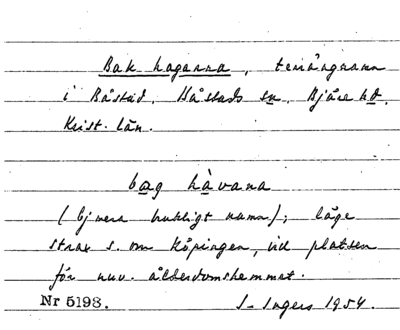 Bak hagarna, terrängnamn
i Båstad, Båstads sn, Bjäre hd,
Krist. län.
bæg hàvana
(ej mera brukligt namn); läge
strax s. om köpingen, vid platsen
för nuv. ålderdomshemmet.
Nr 5193. I. Ingers 1954.